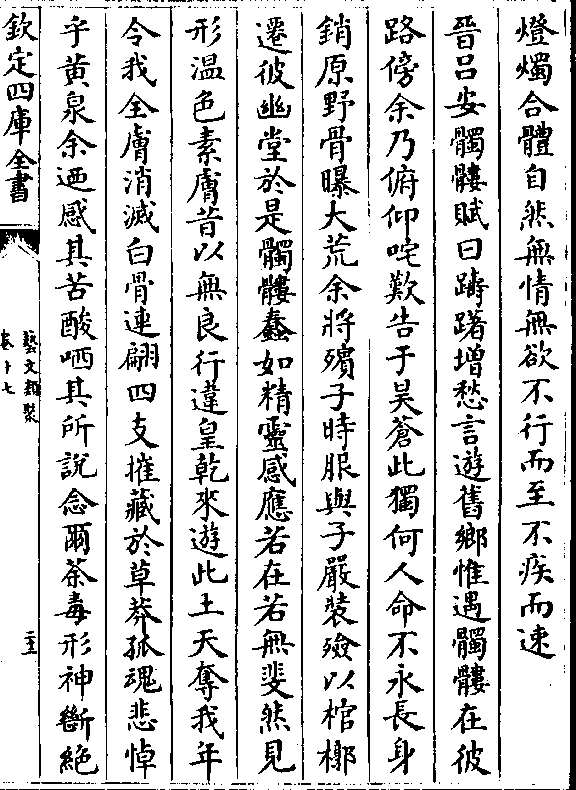 燈燭合體自然無情無欲不行而至不疾而速
晉呂安髑髏賦曰躊躇增愁言遊舊鄉惟遇髑髏在彼
路傍余乃俯仰咤歎告于昊蒼此獨何人命不永長身
銷原野骨曝大荒余將殯子時服與子嚴裝殮以棺槨
遷彼幽堂於是髑髏蠢如精靈感應若在若無斐然見
形温色素膚昔以無良行違皇乾來遊此土天奪我年
令我全膚消滅白骨連翩四支摧藏於草莽孤魂悲悼
乎黄泉余廼感其苦酸哂其所說念爾荼毒形神斷絶
欽定四庫全書
藝文類聚
卷十七
二十五